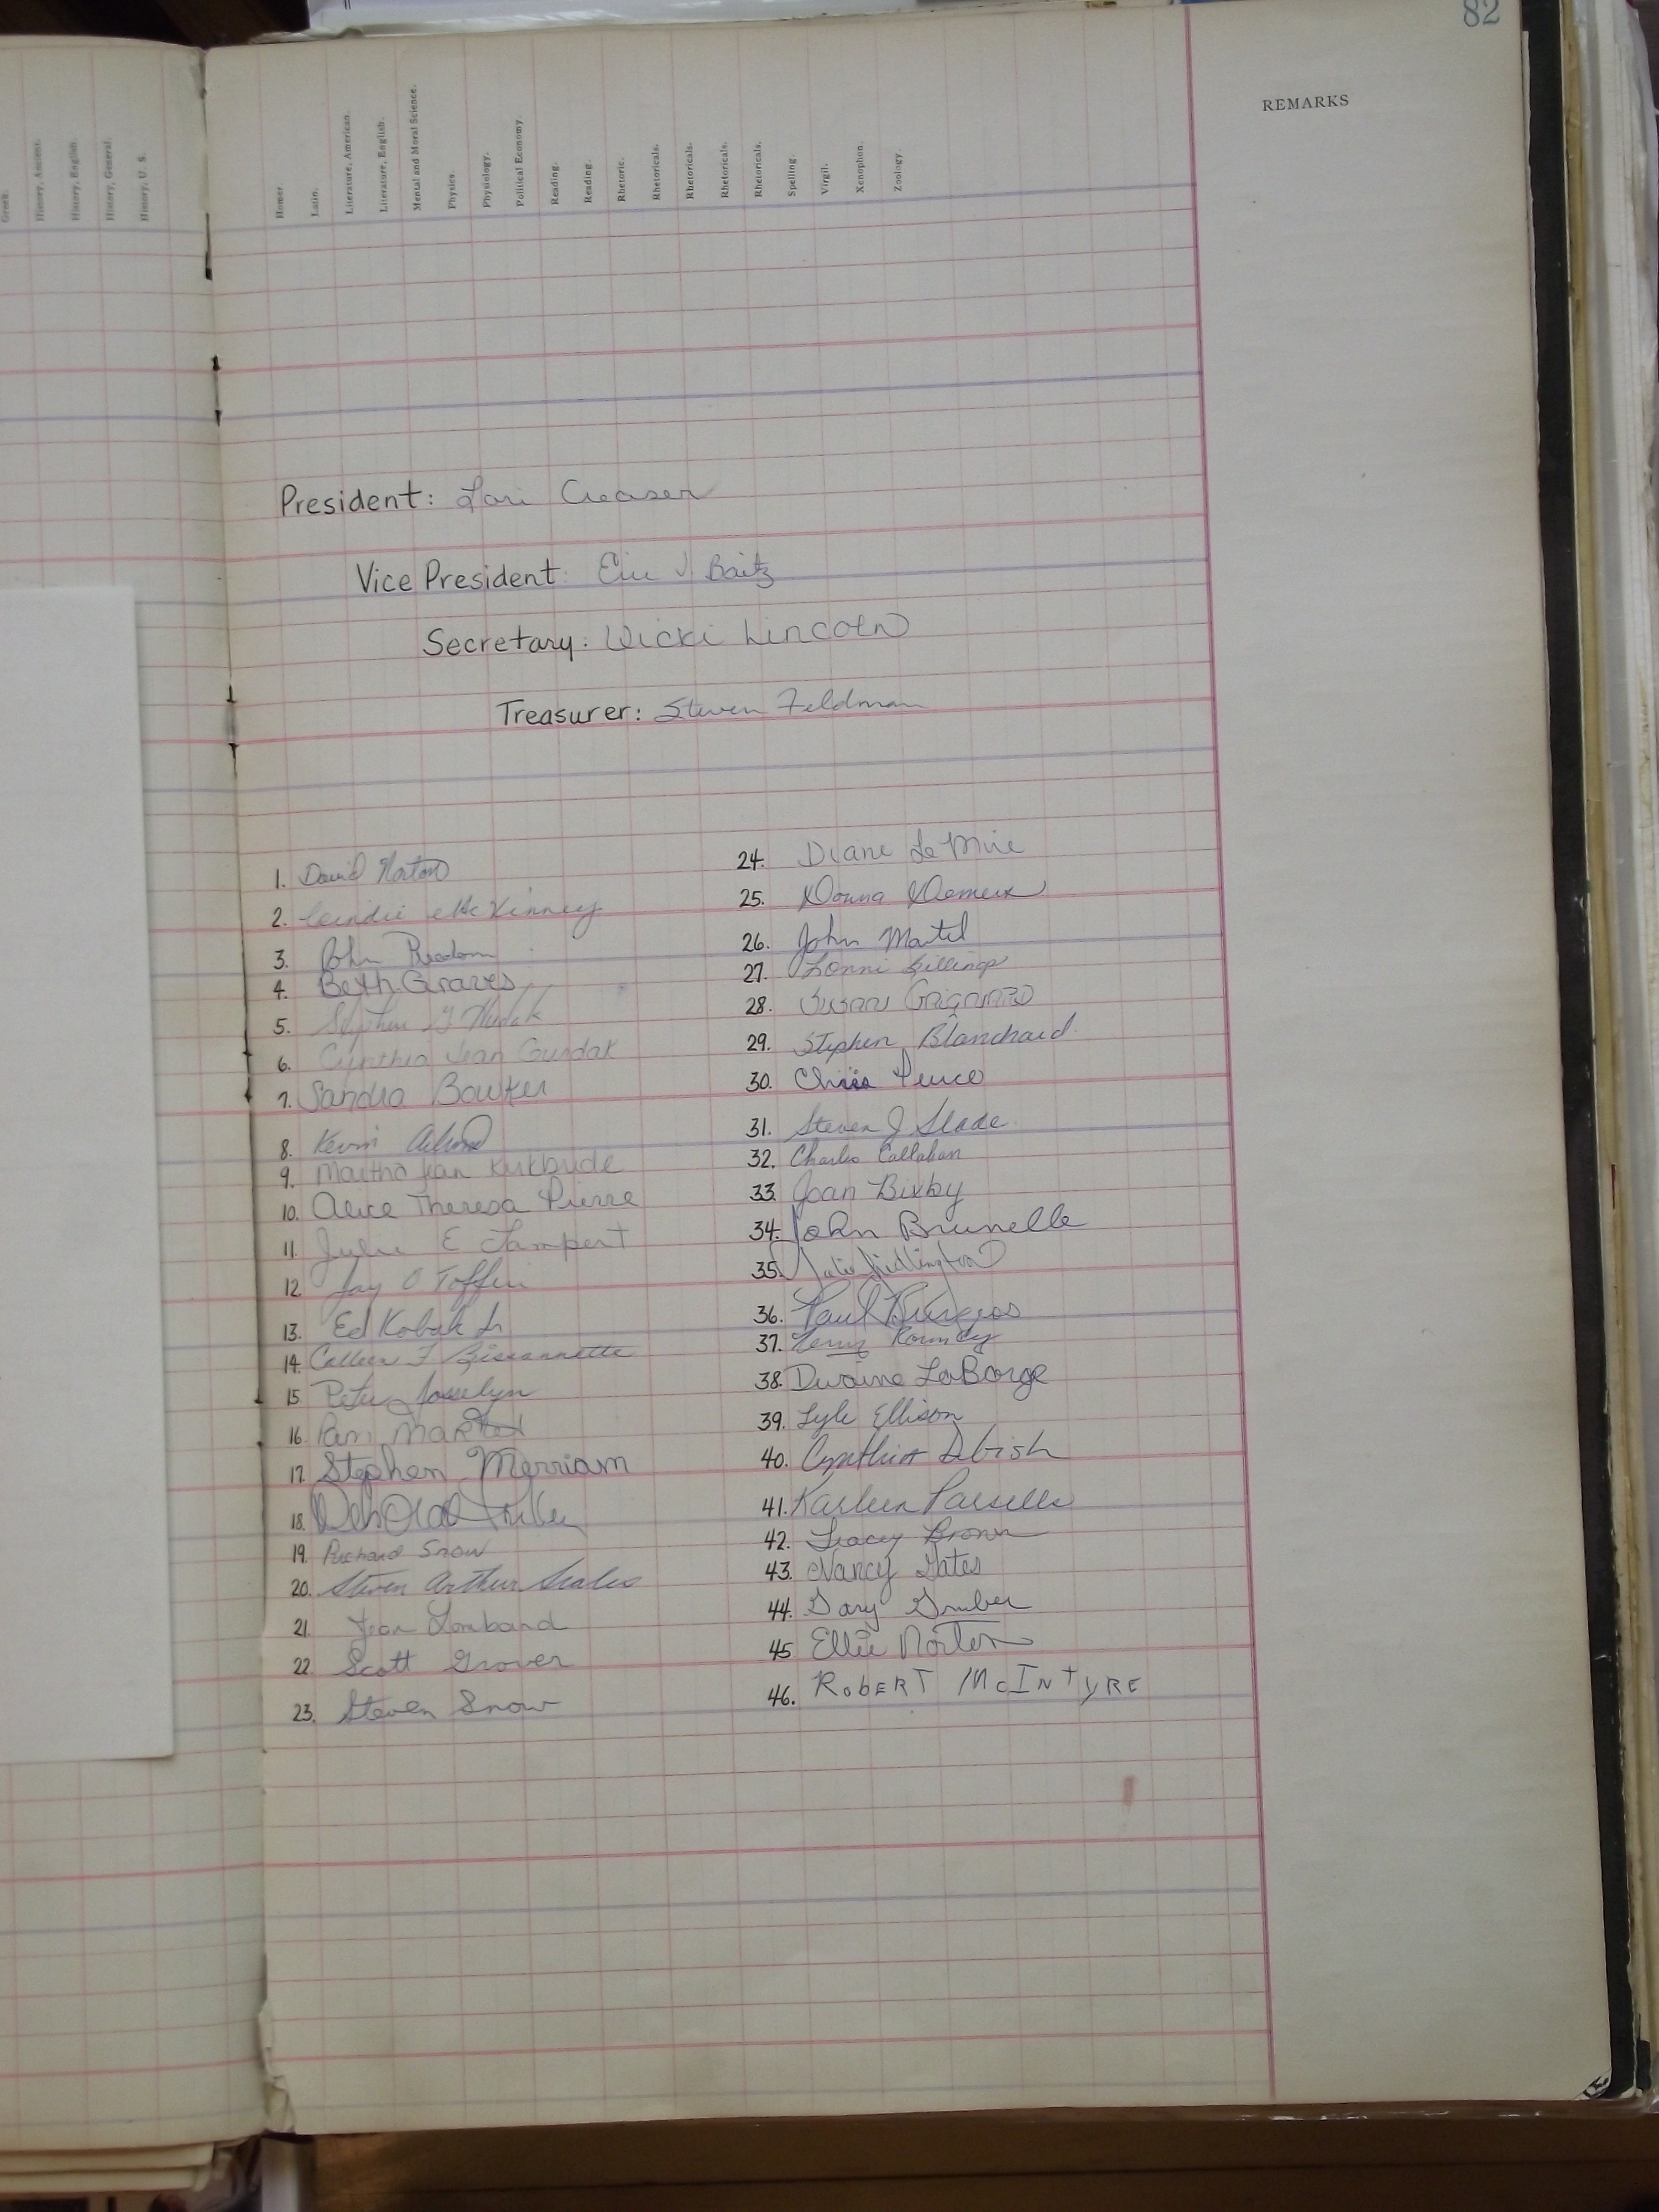 82
REMARKS
Greek.
History, Ancient.
History, English.
History, General.
History, U. S.
Homer.
Latin.
Literature, American.
Literature, English.
Mental and Moral Science.
Physics.
Physiology.
Political Economy.
Reading.
Reading.
Rhetoric.
Rhetoricals.
Rhetoricals.
Rhetoricals.
Rhetoricals.
Spelling.
Virgil.
Xenophon.
Zoology.
President: Lori Creaser
Vice President: Eric J. Baitz
Secretary: Vicki Lincoln
Treasurer: Steven Feldman
1. David Norton
2. Cindie McKinney
3. John
4. Beth Graves
5. Stephen G Hudak
6. Cynthia Jean Gurdak
7. Sandra Bowker
8. Kevin
9. Martha Jean Kirkbride
10. Alice Theresa Pierre
11. Julie E Lampert
12. Jay O Toffin
13. Ed Kobak Jr
14. Colleen F Bissonnette
15 Peter Josselyn
16 Pam
17. Stephen Merriam
18. Deborah
19. Richard Snow
20. Steven Arthur Scales
21. Jean Lombard
22. Scott Grover
23. Steven Snow
24. Diane LeMire
25. Donna Demeux
26. John Martel
27. Lonni Billings
28. Susan
29. Stephen Blanchard
30. Chris Peirce
31. Steven J Slade
32. Charles Callahan
33. Joan Bixby
34. John Brunelle
35. Julie Ridlington
36. Paul Burgess
37. Terry Roundy
38. Dwaine LaBarge
39. Lyle Ellison
40. Cynthia Dbish
41. Karleen Parsells
42. Tracey Brown
43. Nancy Gates
44. Gary Gruber
45 Ellie Norton
46. Robert McIntyre